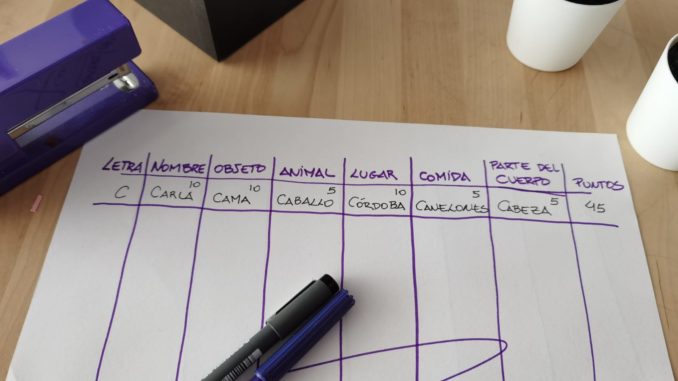 LETRA NOMBRE OBJETO ANIMAL LUGAR COMIDA PARTE DEL CUERPO PUNTOS
C CARLA 10 CAMA 10 CABALLO 5 CÓRDOBA 10 CANELONES 5 CABEZA 5 45